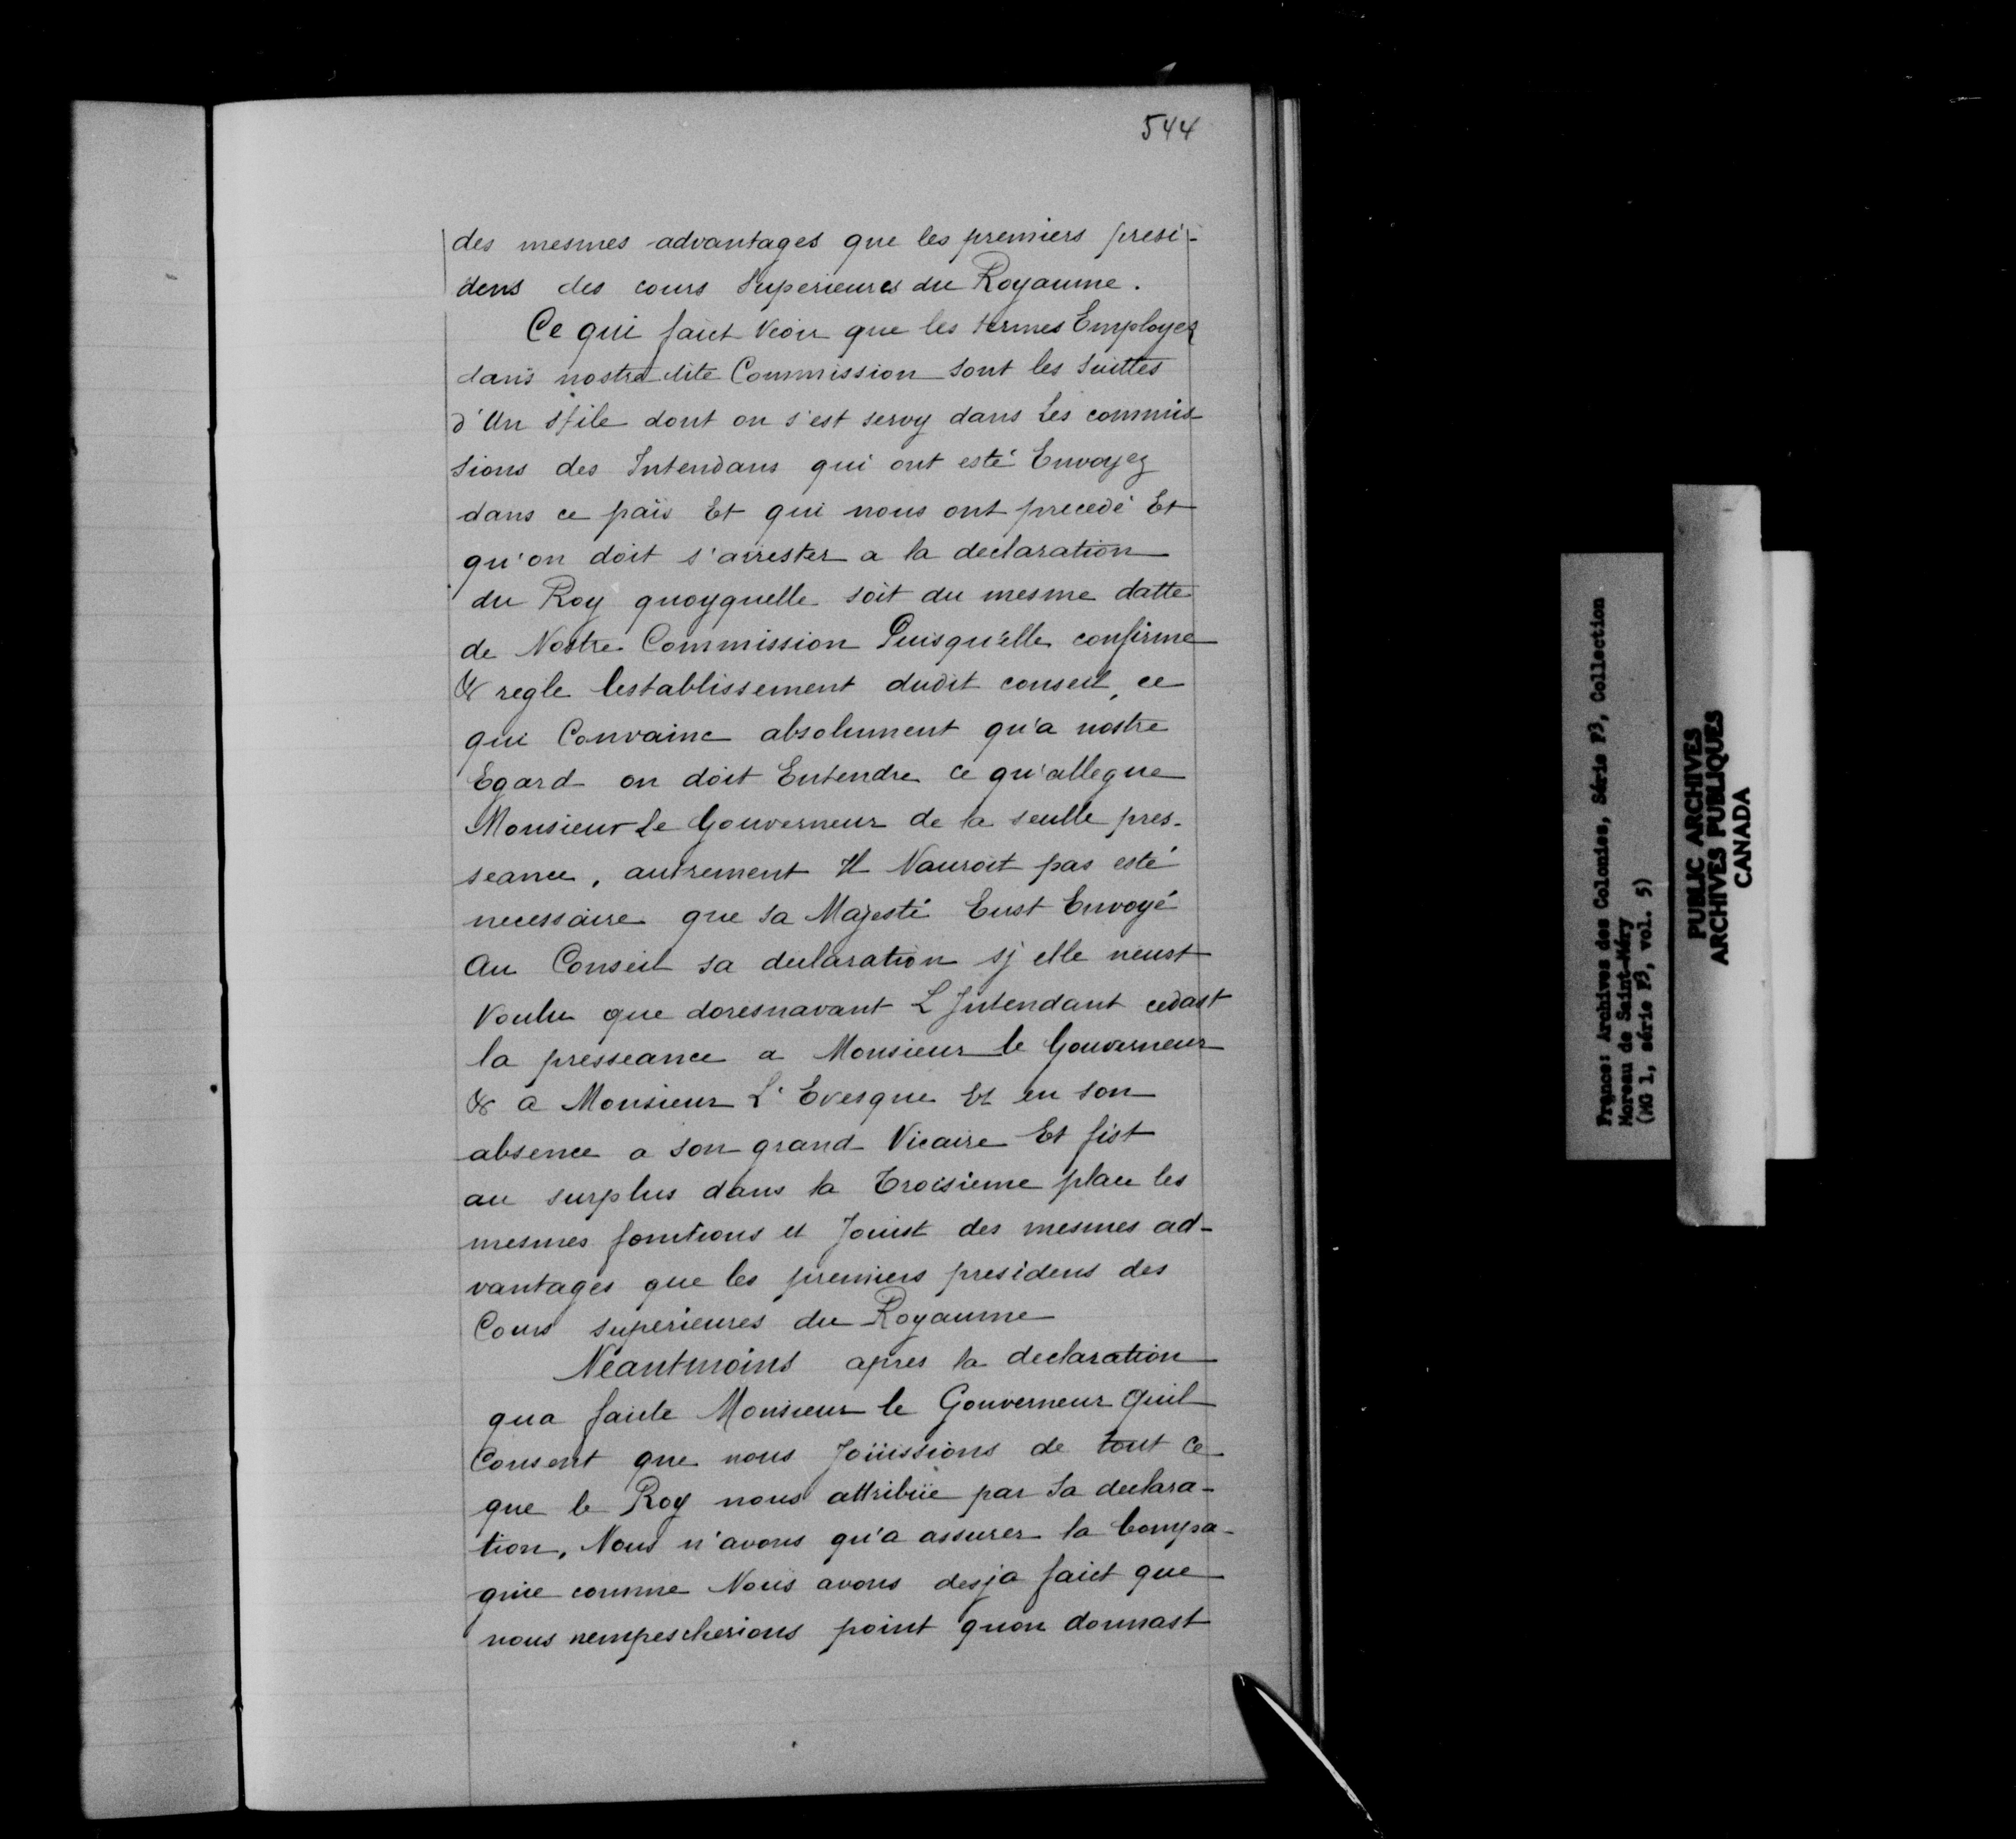 544
des mesmes advantages que les premiers presi-
dens des cours Superieures du Royaume.
Ce qui faict Veoir que les termes Employez
dans nostre dite Commission sont les Suittes
d'Un Stile dont on s'est servy dans Les commis
sions des Intendans qui ont esté Envoyez
dans ce païs Et qui nous ont precedé Et
qu'on doit s'arrester a la declaration
du Roy quoyquelle soit du mesme datte
de Nostre Commission Puisqu'elle confirme
& regle lestablissement dudit conseil, ce
qui Convainc absolument qu'a nostre
Egard on doit Entendre ce qu'allegue
Monsieur le Gouverneur de la seulle pres-
seance, autrement Il Nauroit pas esté
necessaire que sa Majesté Eust Envoyé
Au Conseil sa declaration sj elle neust
Voulu que doresnavant L Intendant cedast
la presseance a Monsieur le Gouverneur
& a Monsieur L'Evesque Et en son
absence a son grand Vicaire Et fist
au surplus dans la Troisieme place les
mesmes fonctions et Jouist des mesmes ad-
vantages que les premiers presidens des
Cours superieures du Royaume
Néantmoins apres la declaration
qua faicte Monsieur le Gouverneur Quil
Consent que nous Joüissions de tout Ce
que le Roy nous attribüe par Sa declara-
tion, Nous n'avons qu'a assurer la Compa-
gnie comme Nous avons desja faict que
nous nempescherions point quon donnast
France: Archives des Colonies, Série F3, Collection
Moreau de Saint-Méry
(MG 1, série F3, vol. 5)
PUBLIC ARCHIVES
ARCHIVES PUBLIQUES
CANADA